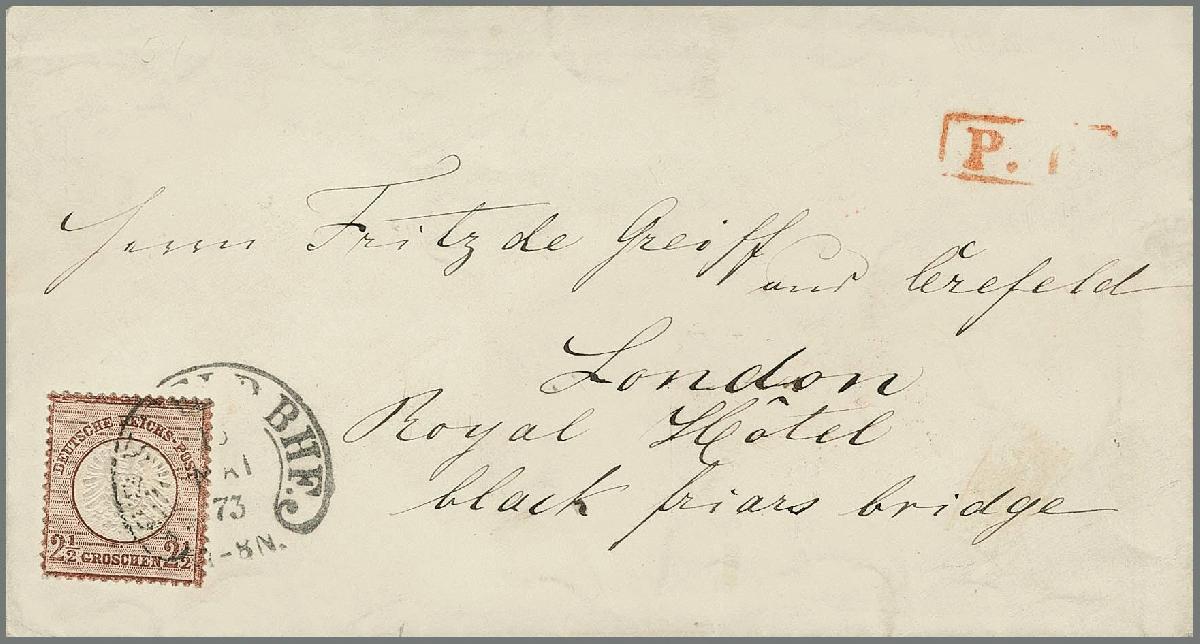 P.
Herrn Fritz de Greiff
aus Crefeld
London
Royal Hôtel
black friars bridge
BHF.
MAI
73
-8N.
DEUTSCHE REICHS-POST
2½ GROSCHEN 2½